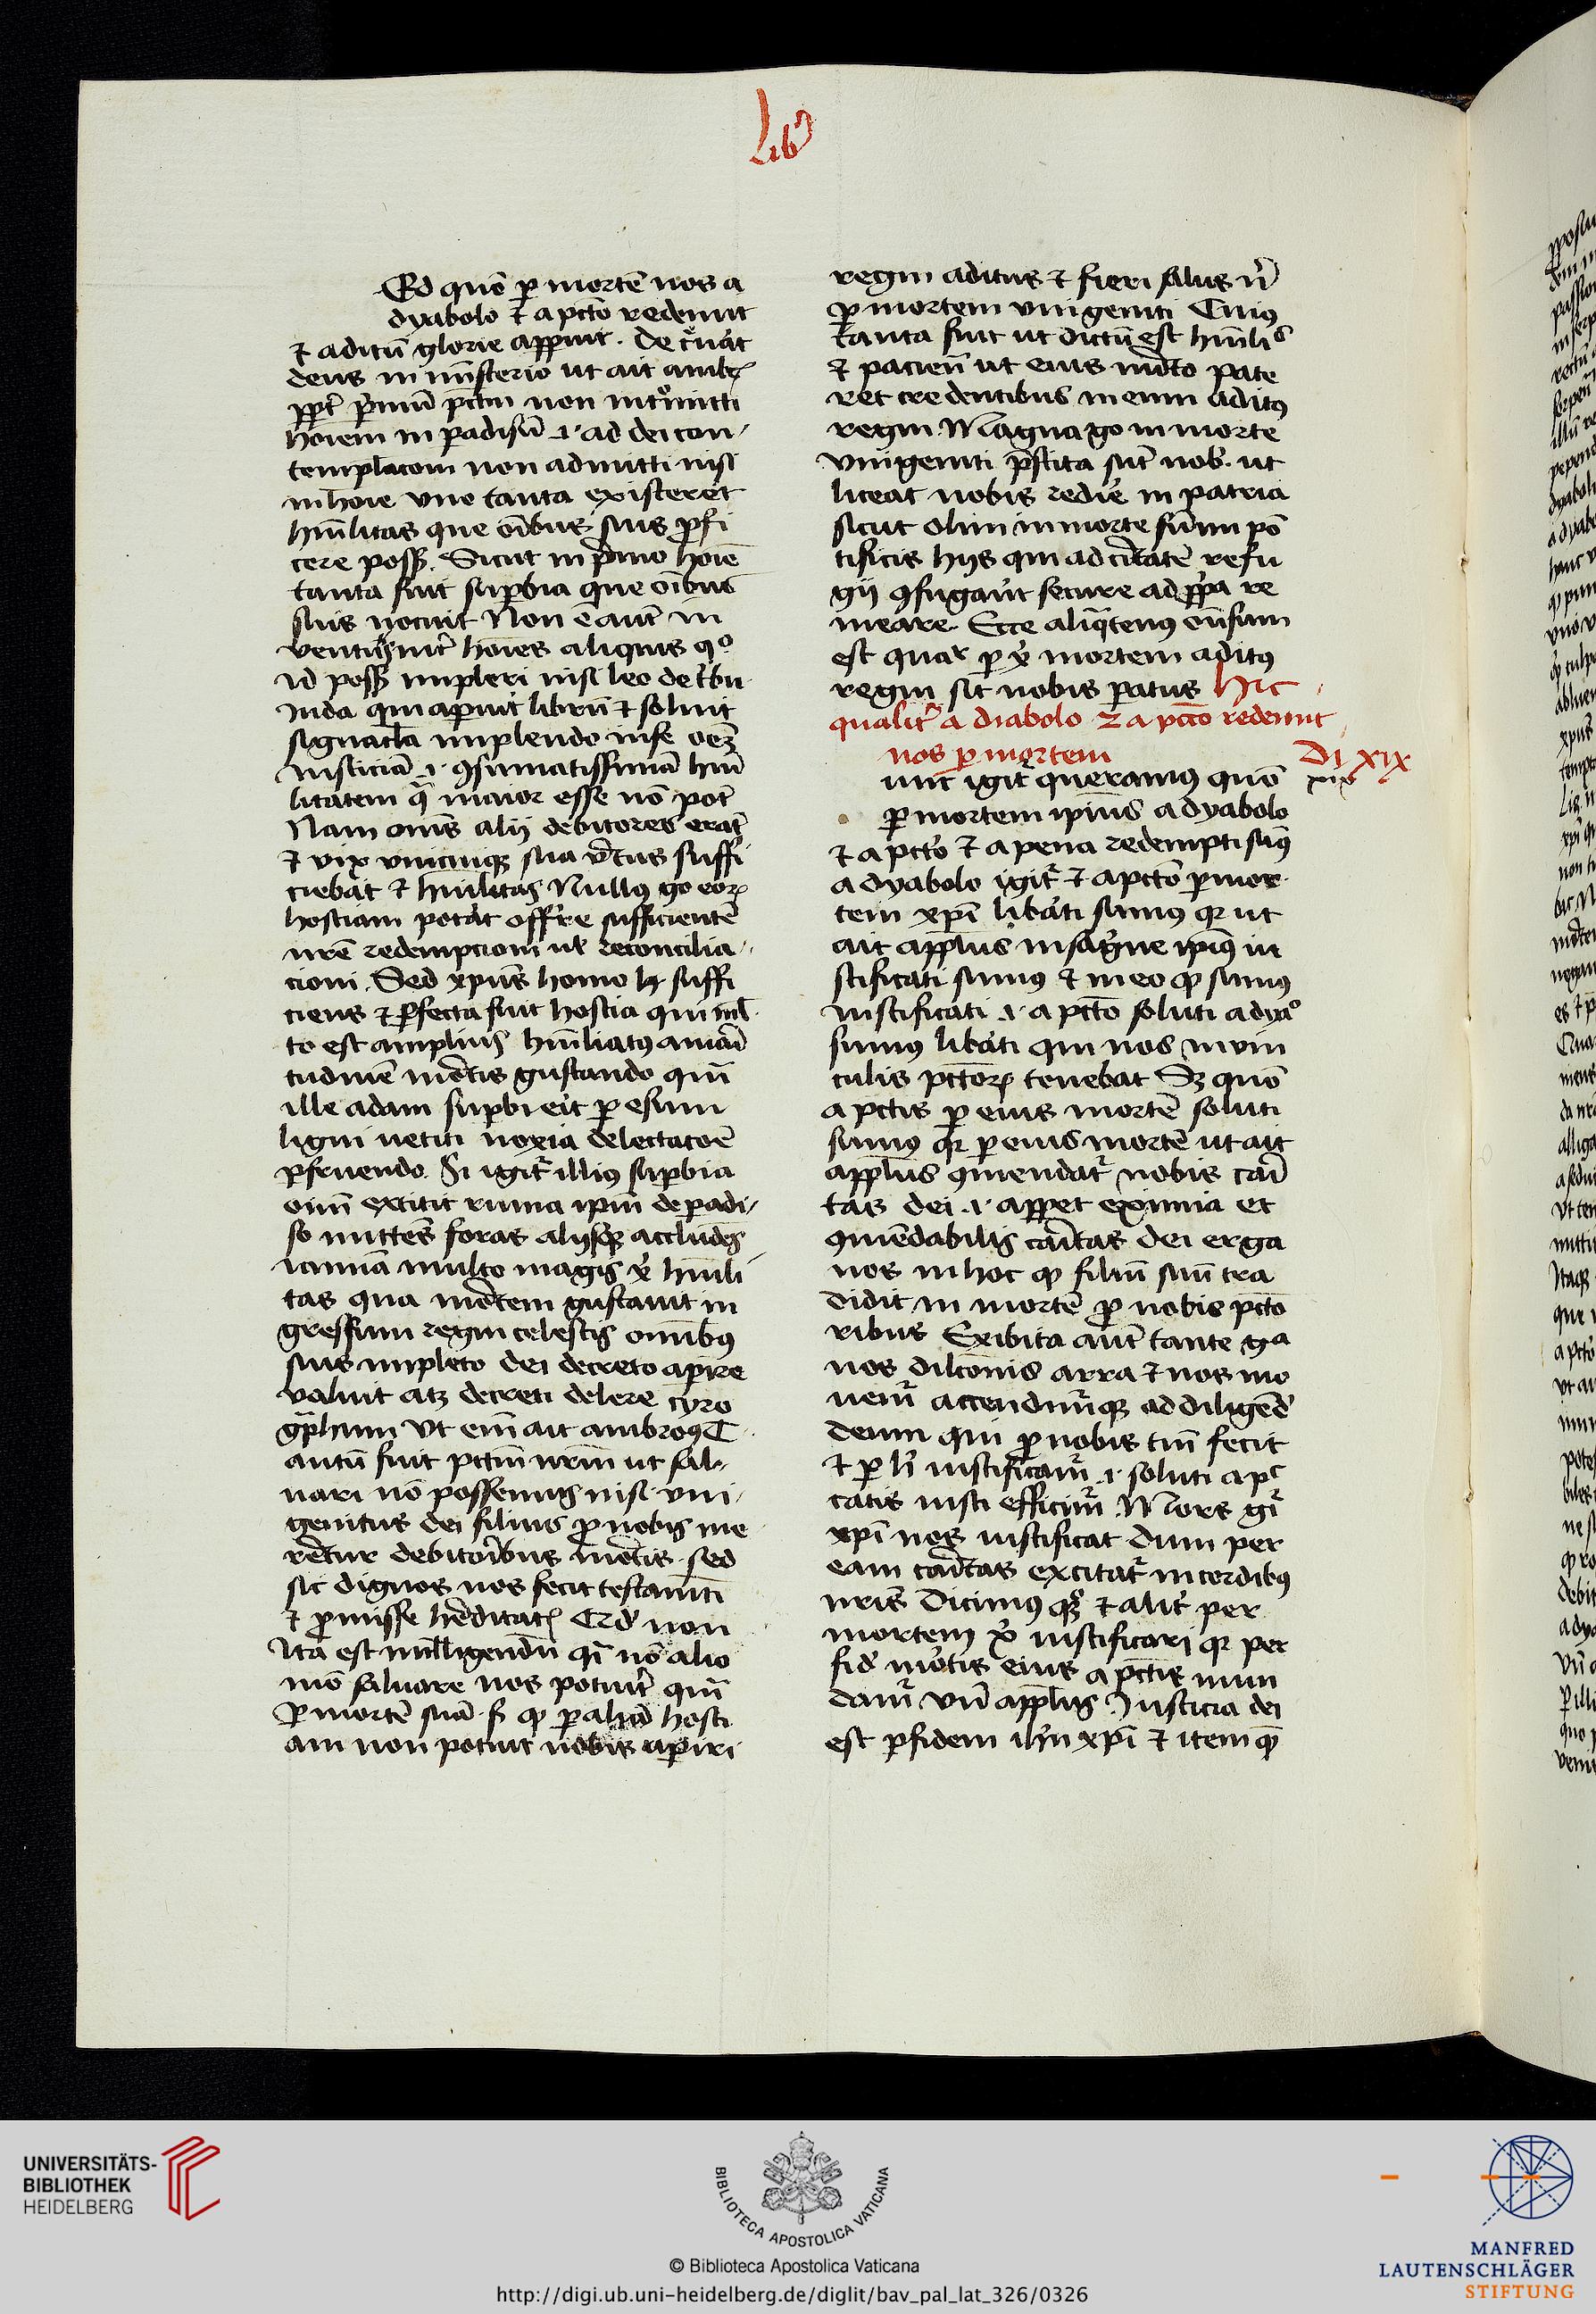 Lib
Ed quō p mortē nos a
dyabolo ⁊ a pctō redemit
⁊ aditū glorie apperuit . De c̄uāt
deus in misterio ut ait amb
ppt̄ p̄mū pctm non introͫitti
hoiem in padisū .i. ad dei con
templacōm non admitti nisi
in hoīe vno tanta existeret
hūlitas que oībus suis pfi
cere poss₃. Sicut in p̄mo hoīe
tanta fuit supbia que oībus
suis nocuit Non ē aut̄ in
uentus int̄ hoīes aliquis qͦ
id poss₃ impleri nisi leo de t'bu
Juda qui aperuit librū ⁊ soluit
signacl̄a implendo in se oēm
iusticiā .i. ꝯsumatissimā hūi
litatem qͣ maior esse nō pot̄
Nam om̄s alij debitores erāt
⁊ vix vnicuiq₃ sua v̄tus suffi
ciebat ⁊ hūilitas Nullꝯ go eoꝝ
hostiam pot'at offr̄e sufficientē
nr̄e redempcioni ul̄ reconcilia
cioni . Sed xpūs homo h̄ suffi
ciens ⁊ pfecta fuit hostia qui ml̄
to est amplius hūiliatꝯ amari
tudinē mōtis gustando qm̄
ille adam supbieīt p esum
ligni uetiti noxia delectacōe
pfruendo. Si igit̄ illiꝯ supbia
oīm extitit ruina ipm̄ de padi
so mittēs foras alijsq₃ accludēs
ianuā multo magis x̄ hūili
tas qua mōtem gustauit in
gressum regni celestis om̄ibꝯ
suis impleto dei decreto apire
valuit atq₃ decreti delere cyro
gͣphum Vt eīm ait ambroꝯ T
antū fuit pctm̄ nr̄m ut sal
uari nō possemus nisi vni
genitus dei filius p nobis mo
reret̄ur debitoribus mōtis . sed
sic dignos nos fecit testamīti
⁊ pmisse hēditatꝭ Qd' non
Ita est intelligendū qͥ nō alio
mō saluare nos potuīt qm̄
P mortē suā . s; qͦ p aliā hosti
am non potuit nobis apiri
regni aditus ⁊ fieri salus nͥ
p mortem vnigeniti Cuiꝯ
tanta fuit ut dictū est hūilis
⁊ pacien̄ ut eius mīto pate
ret credentibus in eum aditꝯ
regni . Magna go in morte
vnigeniti p̄stita sūt nob̄. ut
liceat nobis rediē in patria
sicut olim in morte sūmi pō
tificis hijs qui ad ciūtatē refu
gij ꝯfugaūt secure ad ppa re
meare . Ecce aliqͣtenꝯ oñsum
est quaꝛ p x̄ mortem aditꝯ
regni sit nobis patus Hic
qualit̄ a diabolo ⁊ a pctō redemit
nos p mortem
Di XIX
unc igit̄ queramꝯ quō
p mortem ipīus a dyabolo
⁊ a pctō ⁊ a pena redempti sūꝯ
a dyabolo igit̄ ⁊ a pctō p mor
tem xpī lib'ati sumꝯ qꝛ ut
ait appl̄us in sāgne ipīꝯ iu
stificati sumꝯ ⁊ in eo qͦ sumꝯ
iustificati .i. a pctō soluti a dyaͦ
sumꝯ lib'ati qui nos in vin
culis pctōꝝ tenebat S₃ quō
a pctis p eius mortē soluti
sumꝯ qꝛ p eius mortē ut ait
appl̄us ꝯmendat̄ nobis cari
tas dei .i. appet eximia et
ꝯmēdabilis caritas dei erga
nos in hoc qͦ filiū suū tra
didit in mortē p nobis pctō
ribus Exibita aut̄ tante gͣ
nos dilcōnis arra ⁊ nos mo
uem̄ accendimurq₃ ad diligēd'
deum qui p nobis tm̄ fecit
⁊ p h̄ iustificam̄ .i. soluti a pc
catis iusti efficim̄ . Mors gͥ
xpī nos iustificat dum per
eam caritas excitat̄ in cordibꝯ
nr̄is Dicimꝯ q₃ ⁊ alit̄ per
mortem x̄ iustificari qꝛ per
fid' mōtis eius a pctis mun
dam̄ vn̄ appl̄us . Iusticia dei
est p fidem ih̄u xpī ⁊ item qͦ
UNIVERSITÄTS-
BIBLIOTHEK
HEIDELBERG
BIBLIOTECA APOSTOLICA VATICANA
© Biblioteca Apostolica Vaticana
http://digi.ub.uni-heidelberg.de/diglit/bav_pal_lat_326/0326
MANFRED
LAUTENSCHLÄGER
STIFTUNG